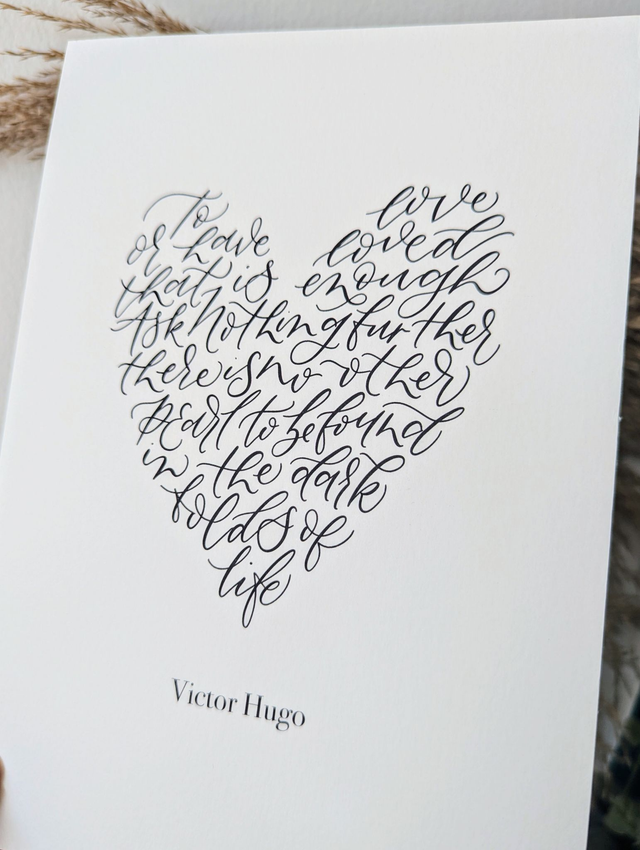 To love
or have loved
that, is enough
Ask Nothing further
there is no other
pearl to be found
in the dark
folds of
life
Victor Hugo